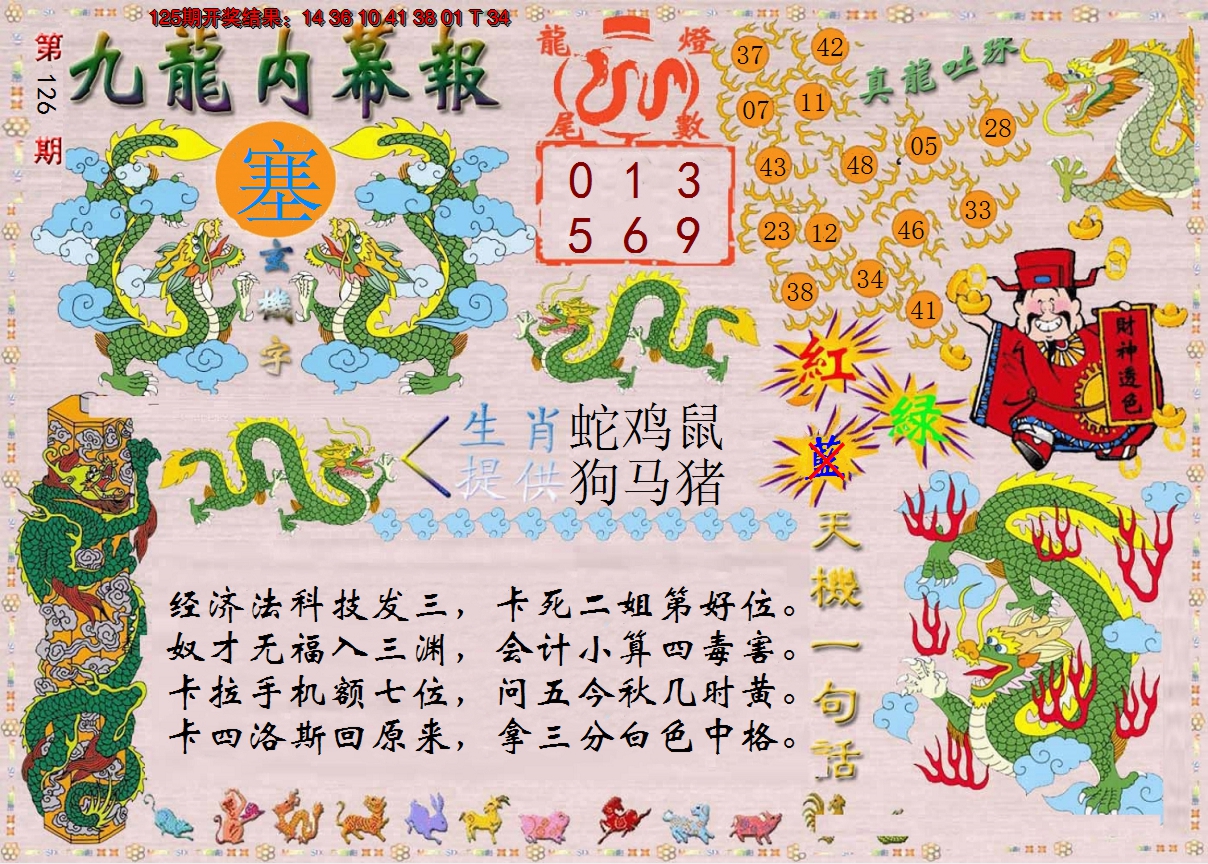 125期开奖结果：14 36 10 41 38 01 T 34
第126期
九龍内幕報
塞
玄機字
龍燈
尾數
0 1 3
5 6 9
真龍吐珠
37 42
07 11
43 48 05 28
23 12 46 33
38 34 41
財神透色
紅
綠
藍
生肖 蛇鸡鼠
提供 狗马猪
经济法科技发三，卡死二姐第好位。
奴才无福入三渊，会计小算四毒害。
卡拉手机额七位，问五今秋几时黄。
卡四洛斯回原来，拿三分白色中格。
天機一句話